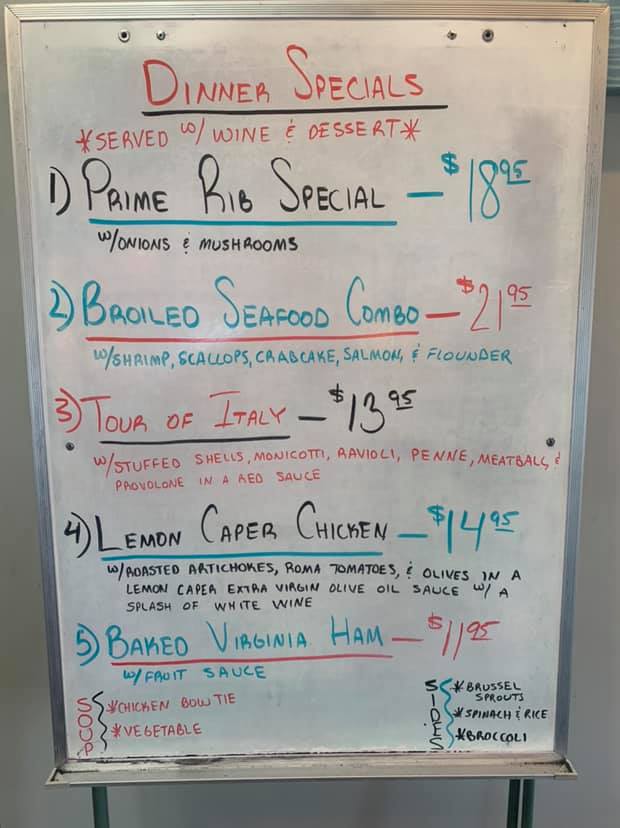 DINNER SPECIALS
*SERVED W/ WINE & DESSERT*
1) PRIME RIB SPECIAL - $18.95
W/ONIONS & MUSHROOMS
2) BROILED SEAFOOD COMBO - $21.95
W/SHRIMP, SCALLOPS, CRABCAKE, SALMON, & FLOUNDER
3) TOUR OF ITALY - $13.95
W/STUFFED SHELLS, MONICOTTI, RAVIOLI, PENNE, MEATBALL, &
PROVOLONE IN A RED SAUCE
4) LEMON CAPER CHICKEN - $14.95
W/ROASTED ARTICHOKES, ROMA TOMATOES, & OLIVES IN A
LEMON CAPER EXTRA VIRGIN OLIVE OIL SAUCE W/ A
SPLASH OF WHITE WINE
5) BAKED VIRGINIA HAM - $11.95
W/ FRUIT SAUCE
SOUP
*CHICKEN BOWTIE
*VEGETABLE
SIDES
*BRUSSEL
SPROUTS
*SPINACH & RICE
*BROCCOLI